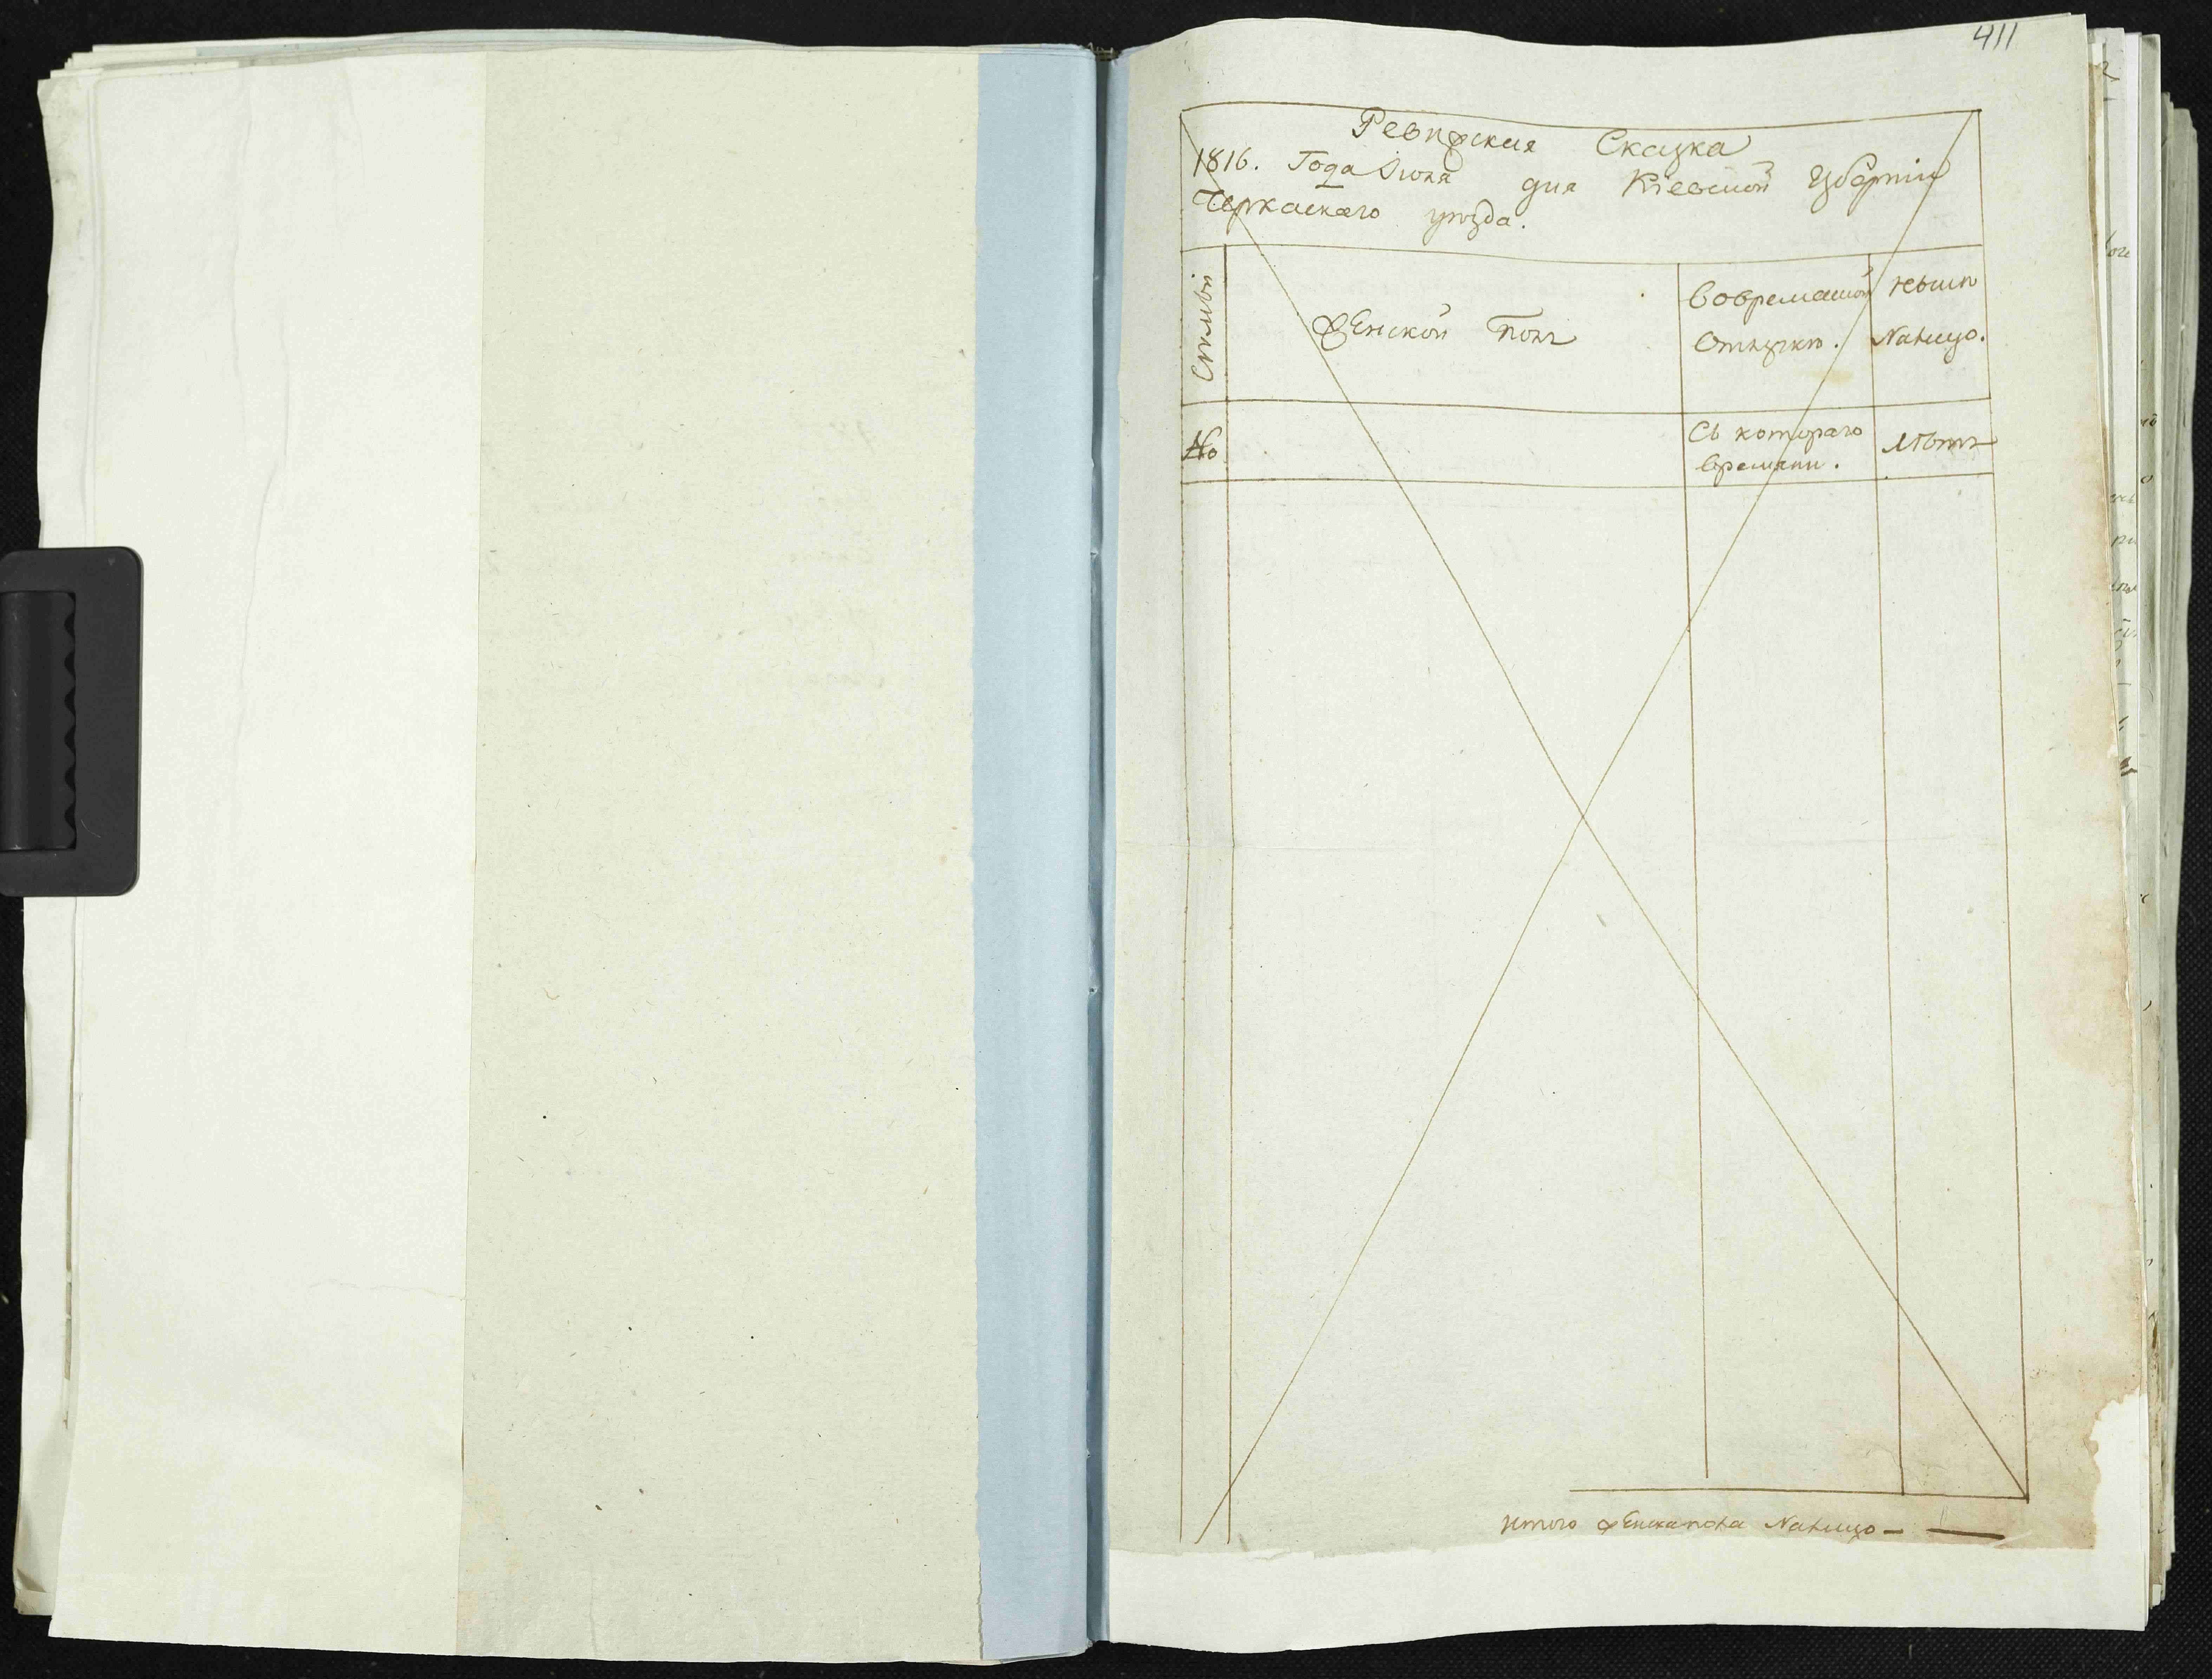 411
Ревизская Сказка
1816. Года Июня дня Кіевской Губерніи
Черкаскаго уѣзда.
Семьи
Женской полъ
Вовременной
Отлучкѣ.
Нынѣ
Налицо.
№
Съ котораго
времяни.
Лѣтъ
итого женскапола Налицо —